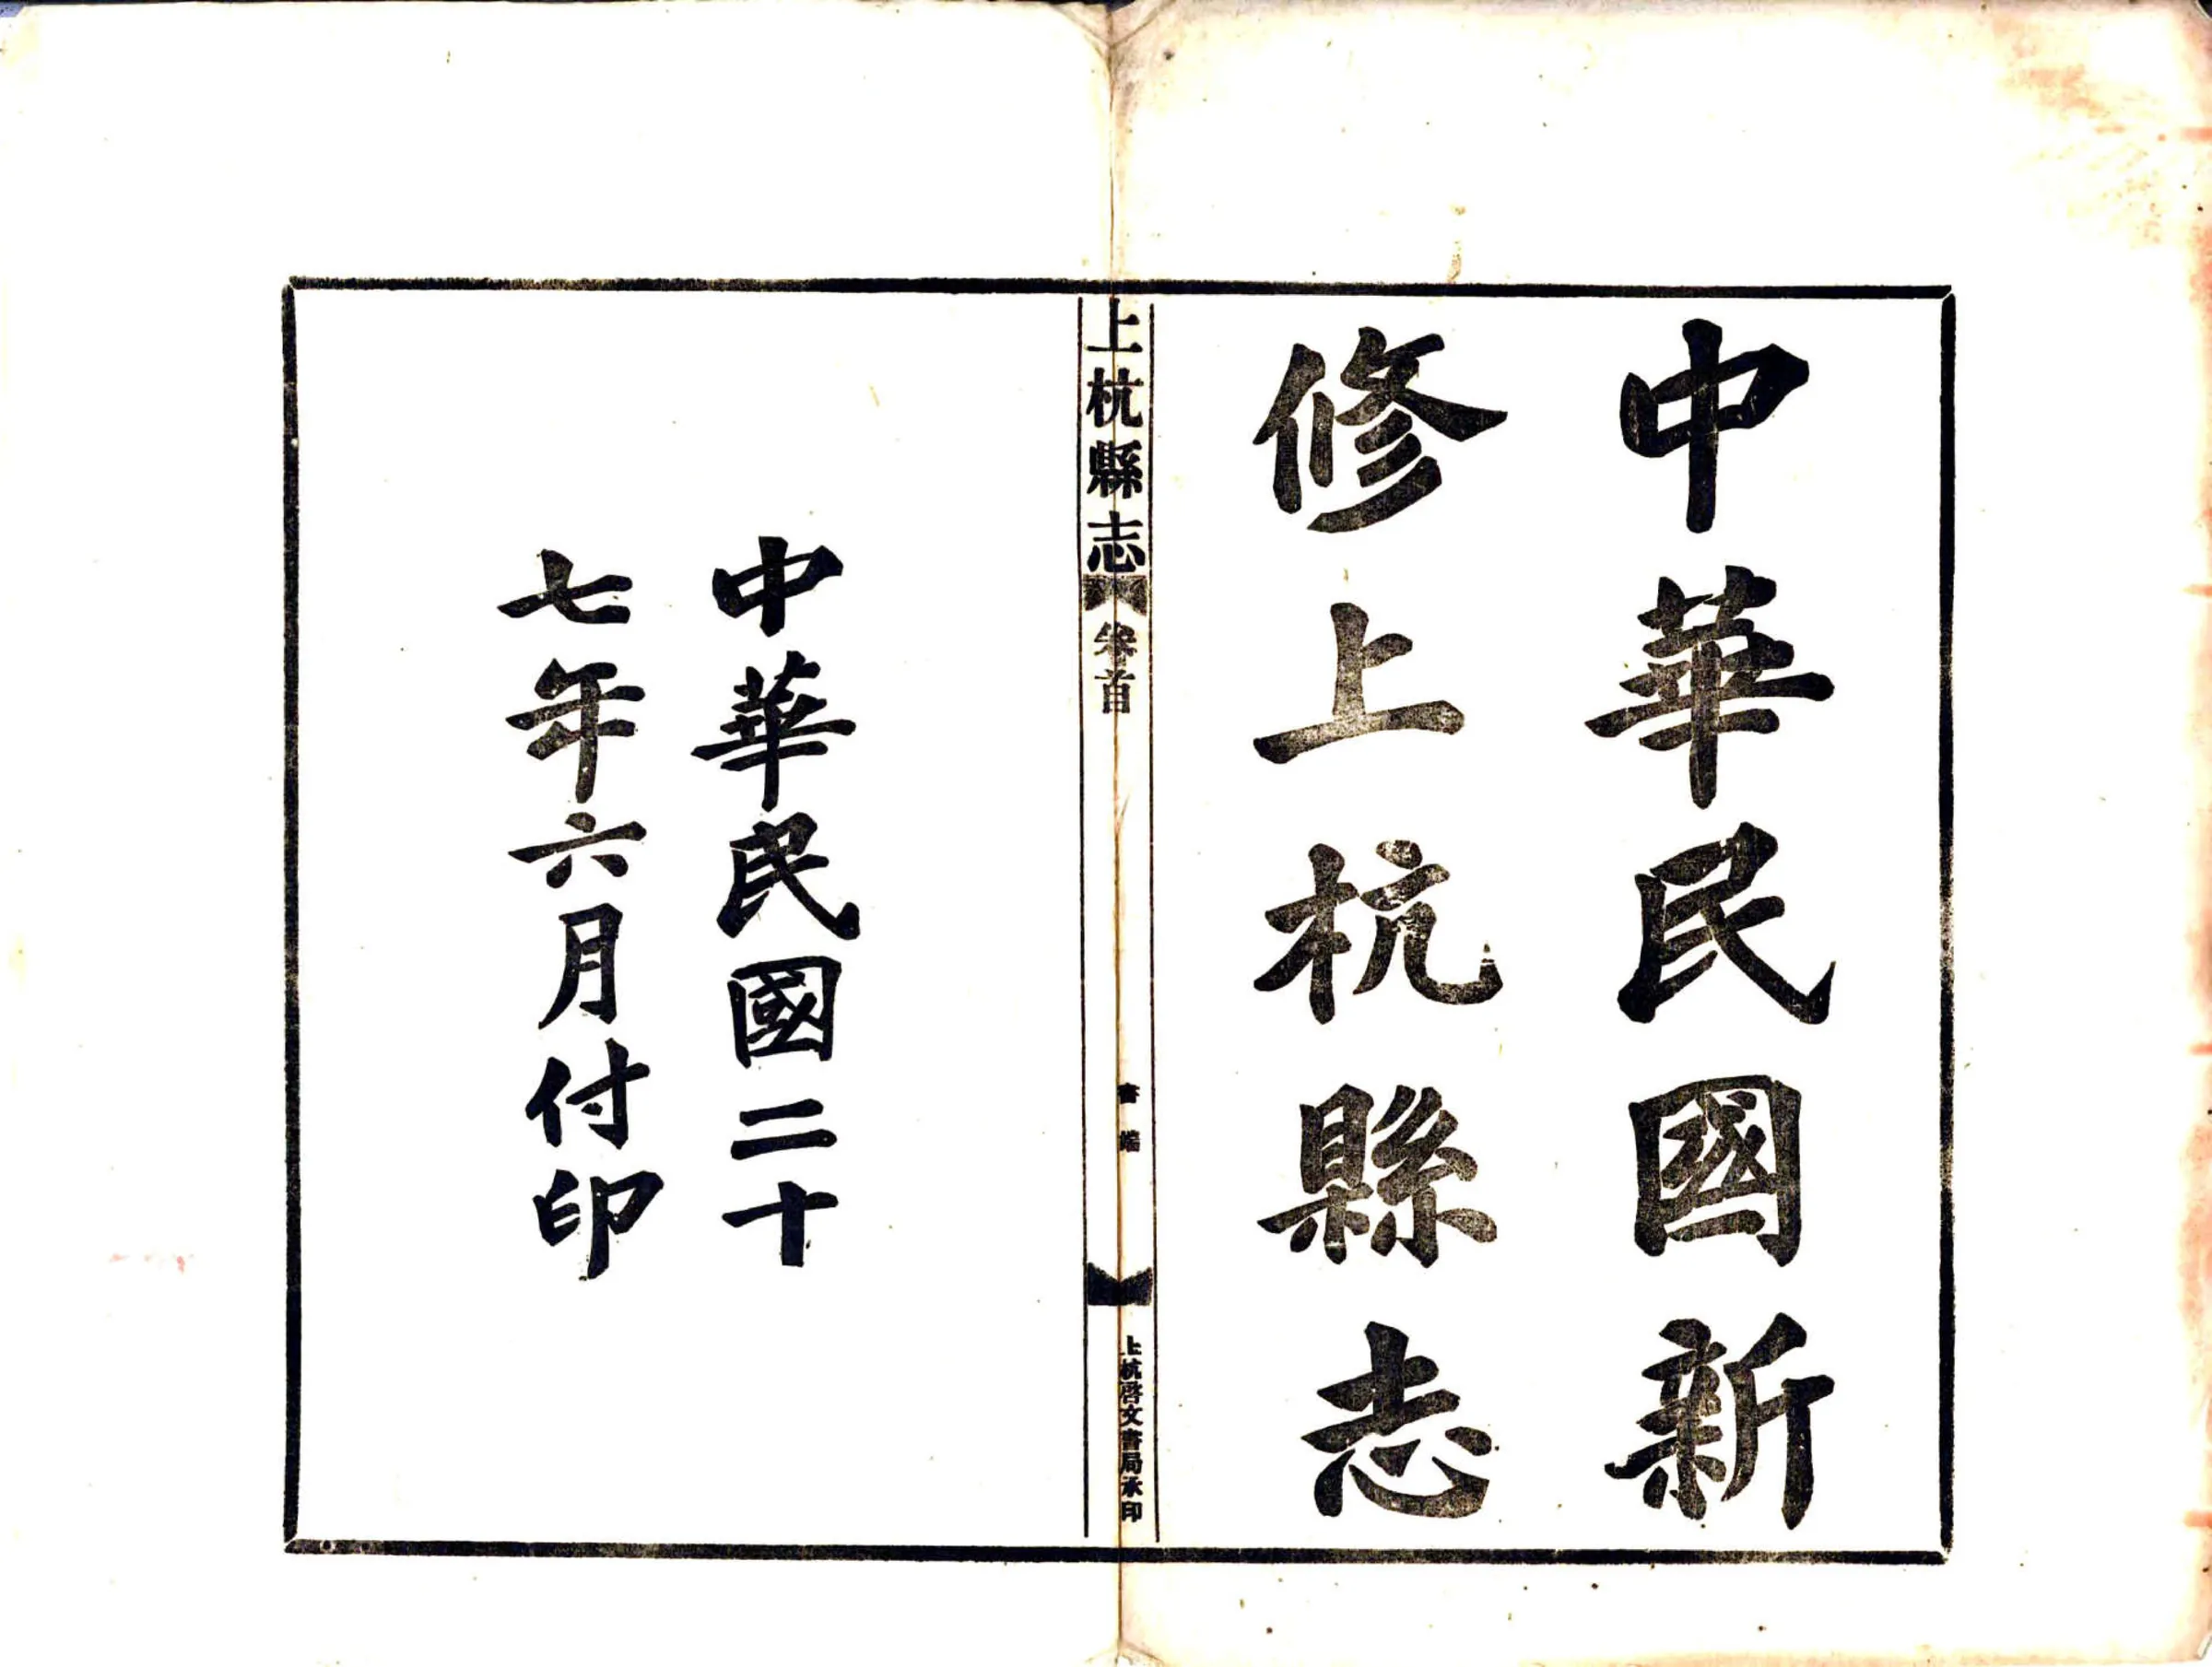 中華民國新
修上杭縣志
上杭縣志
卷首
書端
上杭啓文書局承印
中華民國二十
七年六月付印